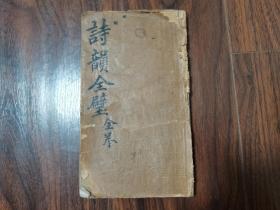 詩韻全璧
全卷